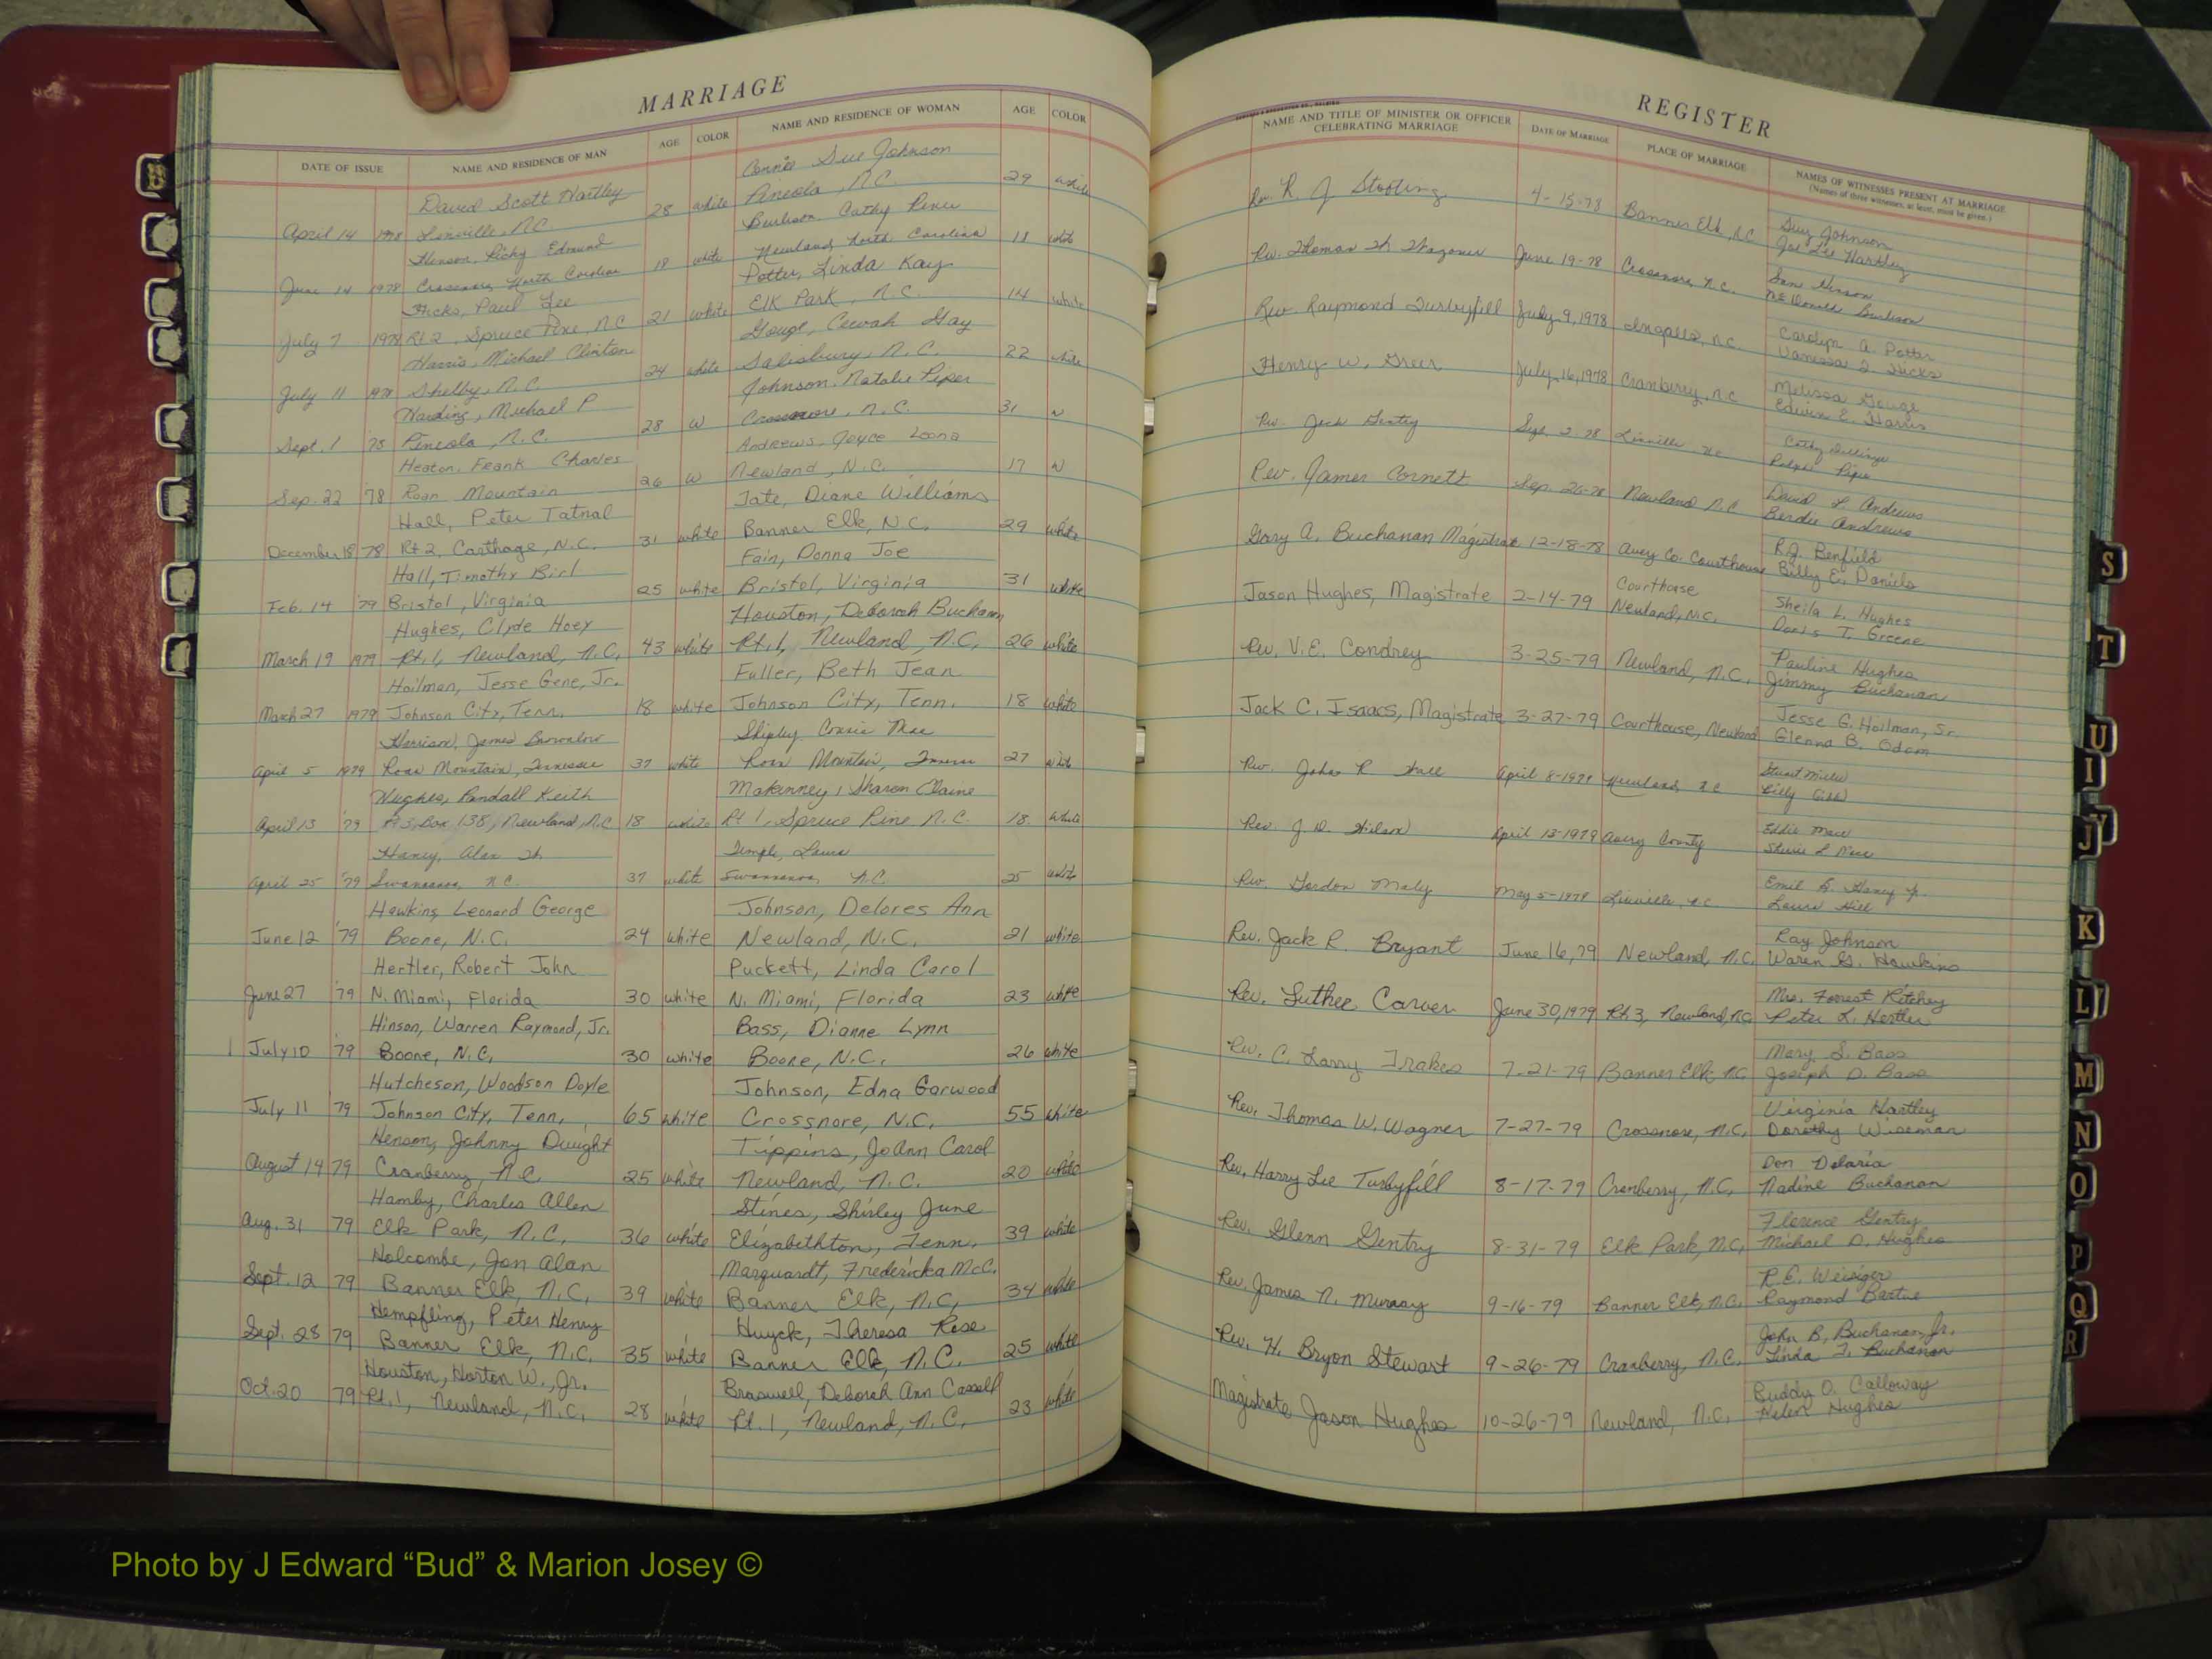 MARRIAGE
DATE OF ISSUE NAME AND RESIDENCE OF MAN AGE COLOR NAME AND RESIDENCE OF WOMAN AGE COLOR
David Scott Hartley Connie Sue Johnson
April 14 1978 Linville, N.C. 28 white Pineola, N.C. 29 white
Henson, Ricky Edmund Burleson, Cathy Renee
June 14 1978 Crossnore, North Carolina 19 white Newland, North Carolina 18 white
Hicks, Paul Lee Potter, Linda Kay
July 7 1978 Rt 2, Spruce Pine, N.C. 21 white Elk Park, N.C. 14 white
Harris, Michael Clinton Gouge, Gay
July 11 1978 Shelby, N.C. 24 white Salisbury, N.C. 22 white
Harding, Michael P Johnson, Natalie Piper
Sept. 1 '78 Pineola, N.C. 28 W Crossnore, N.C. 31 W
Heaton, Frank Charles Andrews, Joyce Loona
Sep. 22 '78 Roan Mountain 26 W Newland, N.C. 17 W
Hall, Peter Tatnal Tate, Diane Williams
December 18 78 Rt 2, Carthage, N.C. 31 white Banner Elk, N.C. 29 white
Hall, Timothy Birl Fain, Donna Joe
Feb. 14 '79 Bristol, Virginia 25 white Bristol, Virginia 31 white
Hughes, Clyde Hoey Houston, Deborah Buchann
March 19 1979 Rt. 1, Newland, N.C. 43 white Rt. 1, Newland, N.C. 26 white
Hoilman, Jesse Gene, Jr. Fuller, Beth Jean
March 27 1979 Johnson City, Tenn. 18 white Johnson City, Tenn. 18 white
Harrison, James Brownlow Shipley Connie Mae
April 5 1979 Roan Mountain, Tennessee 37 white Roan Mountain, 27 white
Hughes, Randall Keith McKinney, Sharon Elaine
April 13 '79 Rt 3, Box 138, Newland, N.C 18 white Rt 1, Spruce Pine N.C. 18 white
Haney, Alan Temple, Laura
April 25 '79 Swannanoa, N.C. 37 white Swannanoa, N.C. 25 white
Hawkins, Leonard George Johnson, Delores Ann
June 12 '79 Boone, N.C. 24 white Newland, N.C. 21 white
Hertler, Robert John Puckett, Linda Carol
June 27 '79 N. Miami, Florida 30 white N. Miami, Florida 23 white
Hinson, Warren Raymond, Jr. Bass, Dianne Lynn
July 10 '79 Boone, N.C. 30 white Boone, N.C. 26 white
Hutcheson, Woodson Doyle Johnson, Edna Garwood
July 11 '79 Johnson City, Tenn. 65 white Crossnore, N.C. 55 white
Henson, Johnny Dwight Tippins, JoAnn Carol
August 14 79 Cranberry, N.C. 25 white Newland, N.C. 20 white
Hamby, Charles Allen Stines, Shirley June
Aug. 31 79 Elk Park, N.C. 36 white Elizabethton, Tenn. 39 white
Holcombe, Jon Alan Marquardt, Fredericka McC.
Sept. 12 79 Banner Elk, N.C. 39 white Banner Elk, N.C. 34 white
Hempfling, Peter Henry Huyck, Theresa Rose
Sept. 28 79 Banner Elk, N.C. 35 white Banner Elk, N.C. 25 white
Houston, Horton W., Jr. Braswell, Deborah Ann Cassell
Oct. 20 79 Rt. 1, Newland, N.C. 28 white Rt. 1, Newland, N.C. 23 white
REGISTER
NAME AND TITLE OF MINISTER OR OFFICER CELEBRATING MARRIAGE DATE OF MARRIAGE PLACE OF MARRIAGE NAMES OF WITNESSES PRESENT AT MARRIAGE
(Names of three witnesses, at least, must be given.)
Rev. R J 4-15-78 Banner Elk, N.C. Guy Johnson
Joe Lee Hartley
Rev. Thomas W. Wagoner June 19-78 Crossnore, N.C. Sam Henson
Burleson
Rev. Raymond Turbyfill July 9, 1978 Ingalls, N.C. Carolyn A. Potter
Vanessa Hicks
Henry W. Greer July 16, 1978 Cranberry, N.C. Melissa Gouge
Edwin E. Harris
Rev. Jack Gentry Sept. 2-78 Linville N.C. Cathy
Ralph Piper
Rev. James Cornett Sep. 26-78 Newland N.C. David L. Andrews
Berdie Andrews
Gary A. Buchanan Magistrate 12-18-78 Avery Co. Courthouse R.J. Benfield
Billy E. Daniels
Jason Hughes, Magistrate 2-14-79 Courthouse
Newland, N.C. Sheila L. Hughes
Doris T. Greene
Rev. V.E. Condrey 3-25-79 Newland, N.C. Pauline Hughes
Jimmy Buchanan
Jack C. Isaacs, Magistrate 3-27-79 Courthouse, Newland Jesse G. Hoilman, Sr.
Glenna B. Odom
Rev. John R Hall April 8-1979 Newland, N.C. Stuart
Billy
Rev. J. D. April 13-1979 Avery County Eddie Mace
Sherrie L Mace
Rev. Gordon Maly May 5-1979 Linville, N.C. Emil Haney Jr.
Laura Hill
Rev. Jack R. Bryant June 16, 79 Newland, N.C. Ray Johnson
Waren G. Hawkins
Rev. Luther Carver June 30, 1979 Rt 3, Newland, N.C. Mrs. Forrest Ritchey
Peter L. Hertler
Rev. C. Larry 7-21-79 Banner Elk N.C. Mary S. Bass
Joseph D. Bass
Rev. Thomas W. Wagner 7-27-79 Crossnore, N.C. Virginia Hartley
Dorothy Wiseman
Rev. Harry Lee Turbyfill 8-17-79 Cranberry, N.C. Don Delaria
Nadine Buchanan
Rev. Glenn Gentry 8-31-79 Elk Park, N.C. Florence Gentry
Michael D. Hughes
Rev. James N. Murray 9-16-79 Banner Elk, N.C. R.E. Weisiger
Raymond
Rev. H. Bryon Stewart 9-26-79 Cranberry, N.C. John B. Buchanan, Jr.
Linda T. Buchanan
Magistrate Jason Hughes 10-26-79 Newland, N.C. Buddy O. Calloway
Helen Hughes
B
S
T
U
I
J
K
L
M
N
O
P
Q
R
Photo by J Edward “Bud” & Marion Josey ©